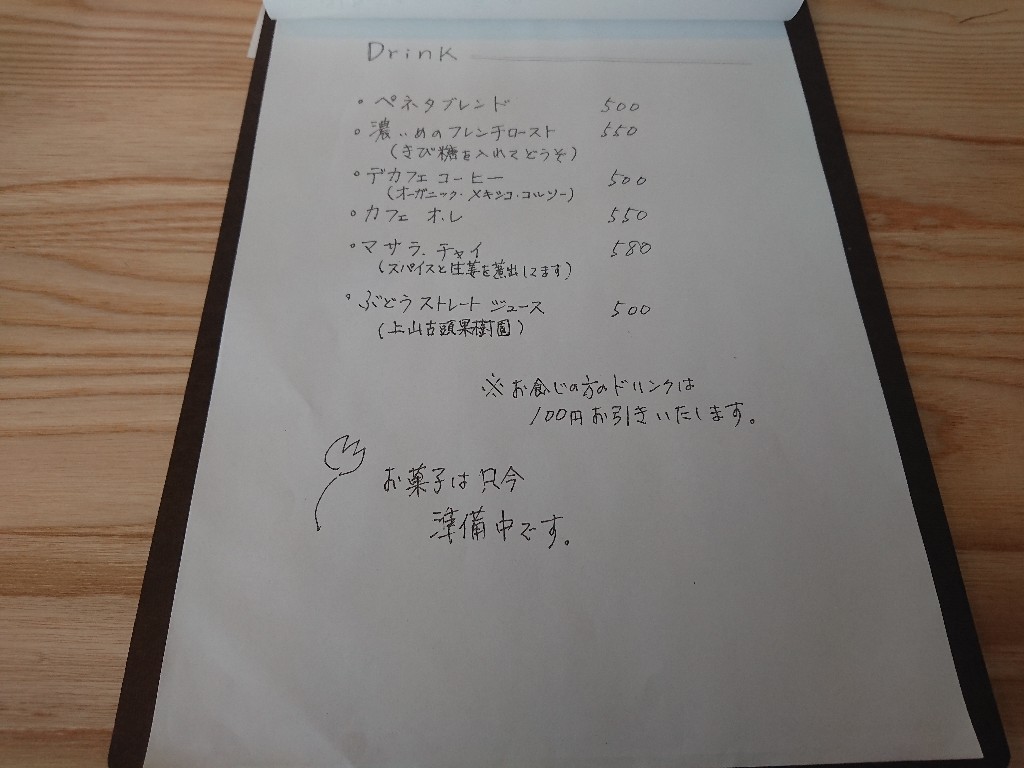 Drink
・ペネタブレンド 500
・濃いめのフレンチロースト 550
(きび糖を入れてどうぞ)
・デカフェコーヒー 500
(オーガニック・メキシコ・コルソー)
・カフェ オ・レ 550
・マサラ・チャイ 580
(スパイスと生姜を煮出してます)
・ぶどうストレートジュース 500
(上山古頭果樹園)
※お食じの方のドリンクは
100円お引きいたします。
お菓子は只今
準備中です。